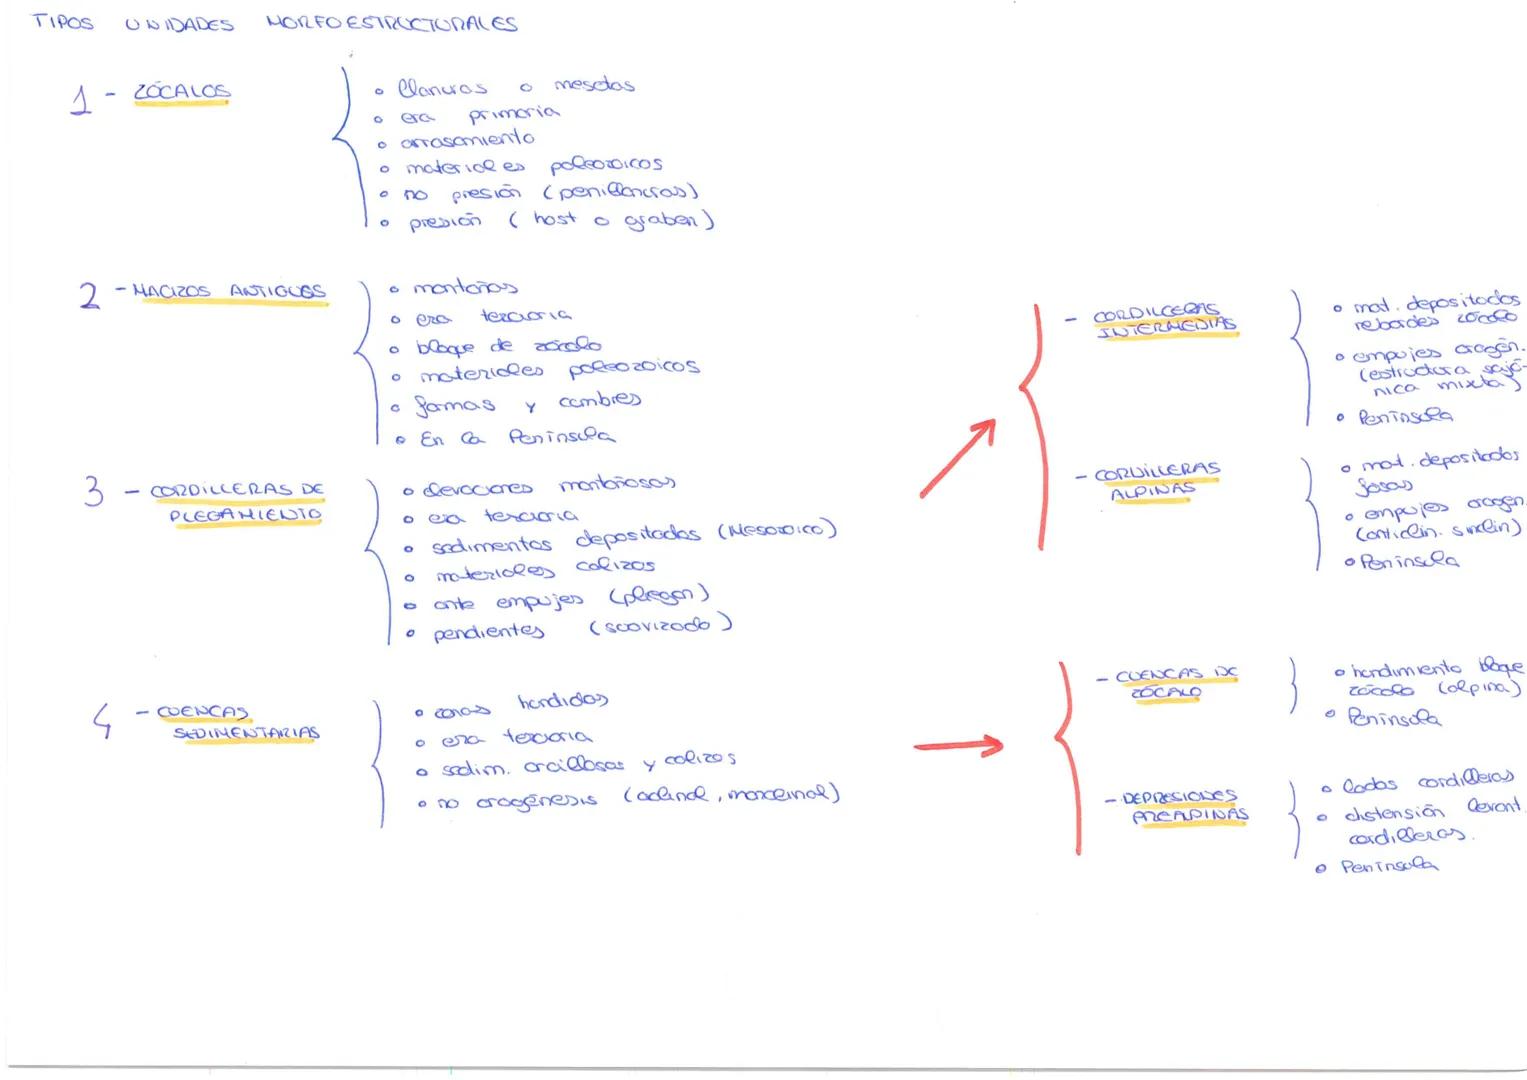 TIPOS UNIDADES MORFOESTRUCTURALES
1 - ZÓCALOS
• llanuras o mesetas
• era primaria
• arrasamiento
• materiales paleozoicos
• no presión (penillanuras)
• presión (host o graben)
2 - MACIZOS ANTIGUOS
• montañas
• era terciaria
• bloque de zócalo
• materiales paleozoicos
• formas y cumbres
• En la Península
3 - CORDILLERAS DE
PLEGAMIENTO
• elevaciones montañosas
• era terciaria
• sedimentos depositados (Mesozoico)
• materiales calizos
• ante empujes (pliegan)
• pendientes (suavizado)
4 - CUENCAS
SEDIMENTARIAS
• zonas hundidas
• era terciaria
• sedim. arcillosos y calizos
• no orogénesis (aclinal, monoclinal)
- CORDILLERAS
INTERMEDIAS
• mat. depositados
rebordes zócalo
• empujes orogén.
(estructura sajó-
nica mixta)
• Península
- CORDILLERAS
ALPINAS
• mat. depositados
fosas
• empujes orogen.
(anticlin. sinclin)
• Península
- CUENCAS DE
ZÓCALO
• hundimiento bloque
zócalo (alpina)
• Península
- DEPRESIONES
PREALPINAS
• lados cordilleras
• distensión levant.
cordilleras.
• Península